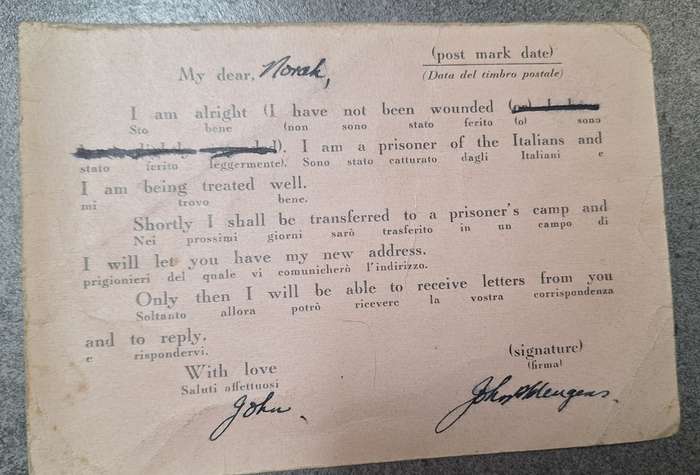 (post mark date)
My dear, Norah,
(Data del timbro postale)
I am alright (I have not been wounded (or) I have
Sto bene (non sono stato ferito (o) sono
been slightly wounded). I am a prisoner of the Italians and
stato ferito leggermente). Sono stato catturato dagli Italiani e
I am being treated well.
mi trovo bene.
Shortly I shall be transferred to a prisoner's camp and
Nei prossimi giorni sarò trasferito in un campo di
I will let you have my new address.
prigionieri del quale vi comunicherò l'indirizzo.
Only then I will be able to receive letters from you
Soltanto allora potrò ricevere la vostra corrispondenza
and to reply.
e rispondervi.
With love
(signature)
Saluti affettuosi
(firma)
John.
John